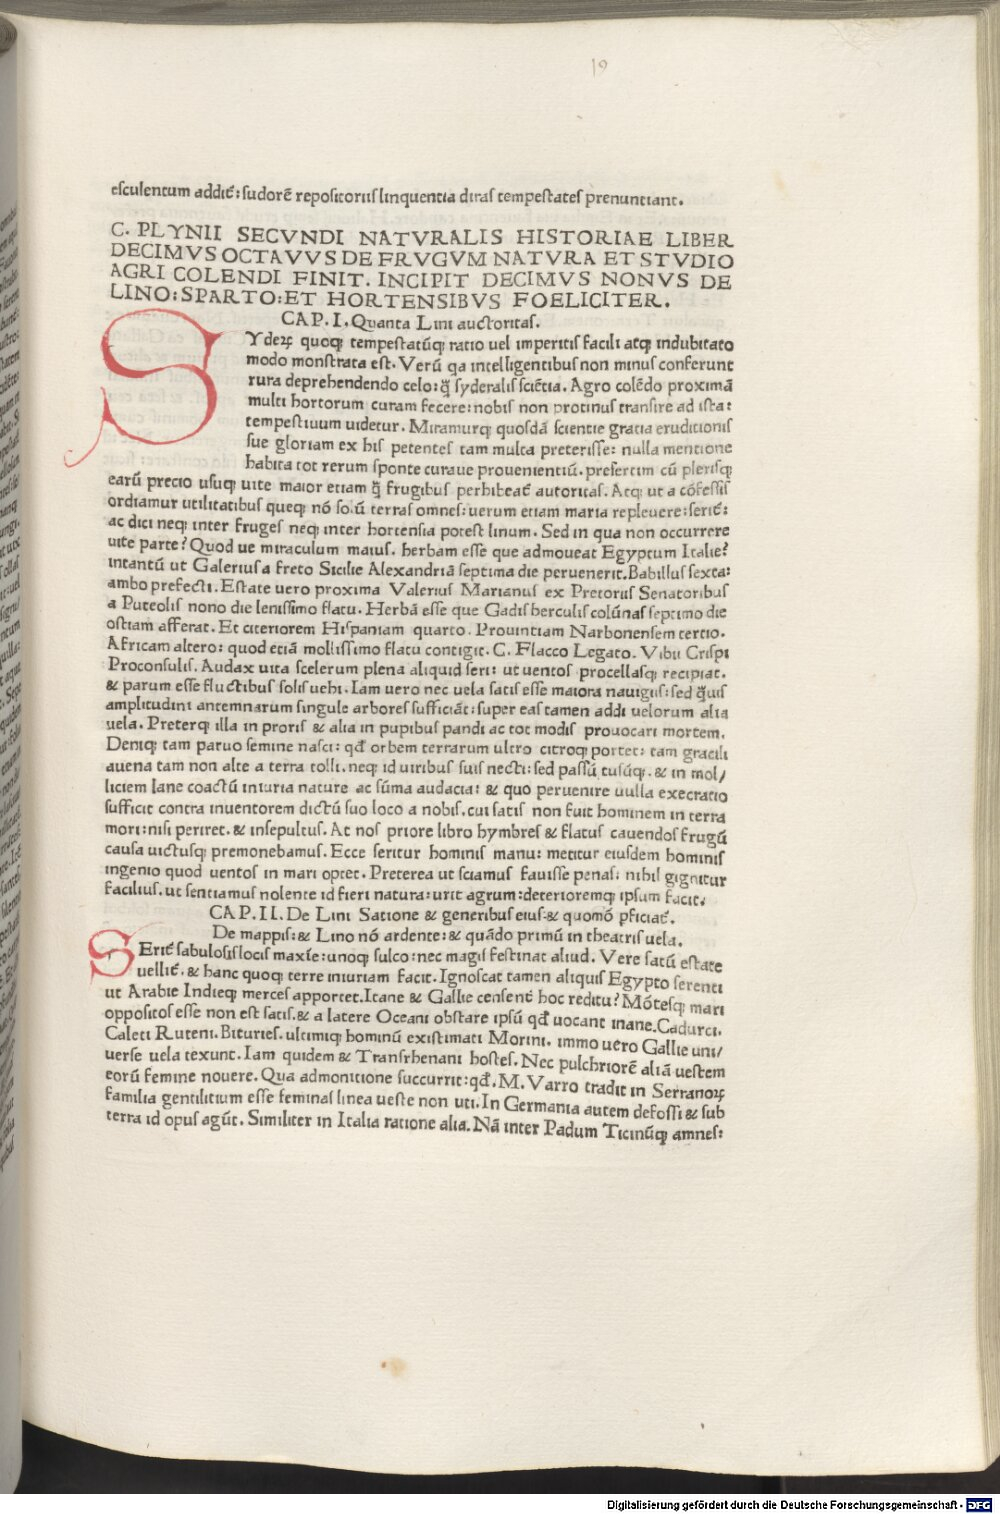 19
esculentum addit&#x0303;: sudorē repositoriis linquentia diras tempestates prenuntiant.
C. PLYNII SECVNDI NATVRALIS HISTORIAE LIBER
DECIMVS OCTAVVS DE FRVGVM NATVRA ET STVDIO
AGRI COLENDI FINIT. INCIPIT DECIMVS NONVS DE
LINO: SPARTO: ET HORTENSIBVS FOELICITER.
CAP. I. Quanta Lini auctoritas.
SYdeꝝ quoqꝫ tempestatūqꝫ ratio uel imperitis facili atqꝫ indubitato
modo monstrata est. Verū qa intelligentibus non minus conferunt
rura deprehendendo celo: q̄ syderalis sciētia. Agro colēdo proximā
multi hortorum curam fecere: nobis non protinus transire ad ista:
tempestiuum uidetur. Miramurqꝫ quosdā scientie gratia eruditionis
sue gloriam ex his petentes tam multa preterisse: nulla mentione
habita tot rerum sponte curaue prouenientiū. presertim cū plerisqꝫ
earū precio usuqꝫ uite maior etiam q̄ frugibus perhibeat̃ autoritas. Atqꝫ ut a cōfessis
ordiamur utilitatibus queqꝫ nō solū terras omnes: uerum etiam maria repleuere: serit̃:
ac dici neqꝫ inter fruges neqꝫ inter hortensia potest linum. Sed in qua non occurrere
uite parte? Quod ue miraculum maius. herbam esse que admoueat Egyptum Italie?
intantū ut Galerius a freto Sicilie Alexandriā septima die peruenerit. Babillus sexta:
ambo prefecti. Estate uero proxima Valerius Marianus ex Pretoriis Senatoribus
a Puteolis nono die lenissimo flatu. Herbā esse que Gadis herculis colūnas septimo die
ostiam afferat. Et citeriorem Hispaniam quarto. Prouintiam Narbonensem tertio.
Africam altero: quod etiā mollissimo flatu contigit. C. Flacco Legato. Vibii Crispi
Proconsulis. Audax uita scelerum plena aliquid seri: ut uentos procellasqꝫ recipiat.
& parum esse fluctibus solis uehi. Iam uero nec uela satis esse maiora nauigiis: sed q̄uis
amplitudini antemnarum singule arbores sufficiāt: super eas tamen addi uelorum alia
uela. Preterqꝫ illa in proris & alia in pupibus pandi ac tot modis prouocari mortem.
Deniqꝫ tam paruo semine nasci: qđ orbem terrarum ultro citroqꝫ portet: tam gracili
auena tam non alte a terra tolli. neqꝫ id uiribus suis necti: sed passū tusūqꝫ. & in mol/
liciem lane coactū iniuria nature ac sūma audacia: & quo peruenire uulla execratio
sufficit contra inuentorem dictū suo loco a nobis. cui satis non fuit hominem in terra
mori: nisi periret. & insepultus. At nos priore libro hymbres & flatus cauendos frugū
causa uictusqꝫ premonebamus. Ecce seritur hominis manu: metitur eiusdem hominis
ingenio quod uentos in mari optet. Preterea ut sciamus fauisse penas: nihil gignitur
facilius. ut sentiamus nolente id fieri natura: urit agrum: deterioremqꝫ ipsum facit.
CAP. II. De Lini Satione & generibus eius. & quomō pficiat̃.
De mappis: & Lino nō ardente: & quādo primū in theatris uela.
SErit̃ sabulosis locis maxīe: unoqꝫ sulco: nec magis festinat aliud. Vere satū estate
uellit̃. & hanc quoqꝫ terre iniuriam facit. Ignoscat tamen aliquis Egypto serenti
ut Arabie Indieqꝫ merces apportet. Itane & Gallie censent̃ hoc reditu? Mōtesqꝫ mari
oppositos esse non est satis. & a latere Oceani obstare ipsū qđ uocant inane. Cadurci.
Caleti Ruteni. Bituries. ultimiqꝫ hominū existimati Morini. immo uero Gallie uni/
uerse uela texunt. Iam quidem & Transrhenani hostes. Nec pulchriorē aliā uestem
eorū femine nouere. Qua admonitione succurrit: qđ. M. Varro tradit in Serranoꝝ
familia gentilitium esse feminas linea ueste non uti. In Germania autem defossi & sub
terra id opus agūt. Similiter in Italia ratione alia. Nā inter Padum Ticinūqꝫ amnes:
Digitalisierung gefördert durch die Deutsche Forschungsgemeinschaft - DFG